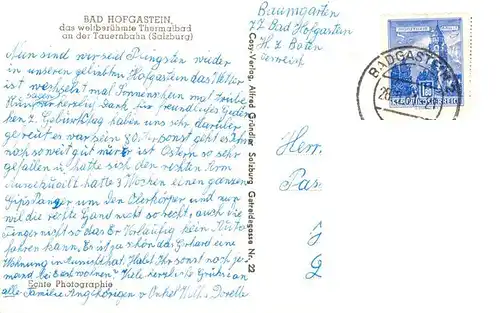 BAD HOFGASTEIN,
das weltberühmte Thermalbad
an der Tauernbahn (Salzburg)
Nun sind wir seid Pfingsten wieder
in unseren geliebten Hofgastein das Wetter
ist wechselt mal Sonnenschein mal trübe
sagen herzlig Dank für freundliges Geden
ken z. Geburtstag haben uns sehr darüber
gefreut es war sein 80. Er sonst geht es ihm
noch soweit gut nur er ist Ostern so sehr
gefallen u. hatte sich den rechten Arm
hatte 3 Wochen einen ganzen
Gips Panzer um den Oberkörper und nun
will die rechte Hand nicht so recht, auch die
Finger nicht so das Er Vorläufig kein Auto
fahren kann. Er ist zu schön das Gerhard eine
Wohnung in hat. Habt Ihr sonst noch je-
mand bei Euch wohnen? Viele herzliche Grüße an
alle Familie Angehörigen v. Onkel Willi u. Dorelle
Echte Photographie
Cosy-Verlag, Alfred Gründler, Salzburg, Getreidegasse Nr. 22
Baumgarten
z Z Bad Hofgastein
Hs. z Boten
BADGASTEIN 2
REPUBLIK ÖSTERREICH
Herr.
Pas
J
L